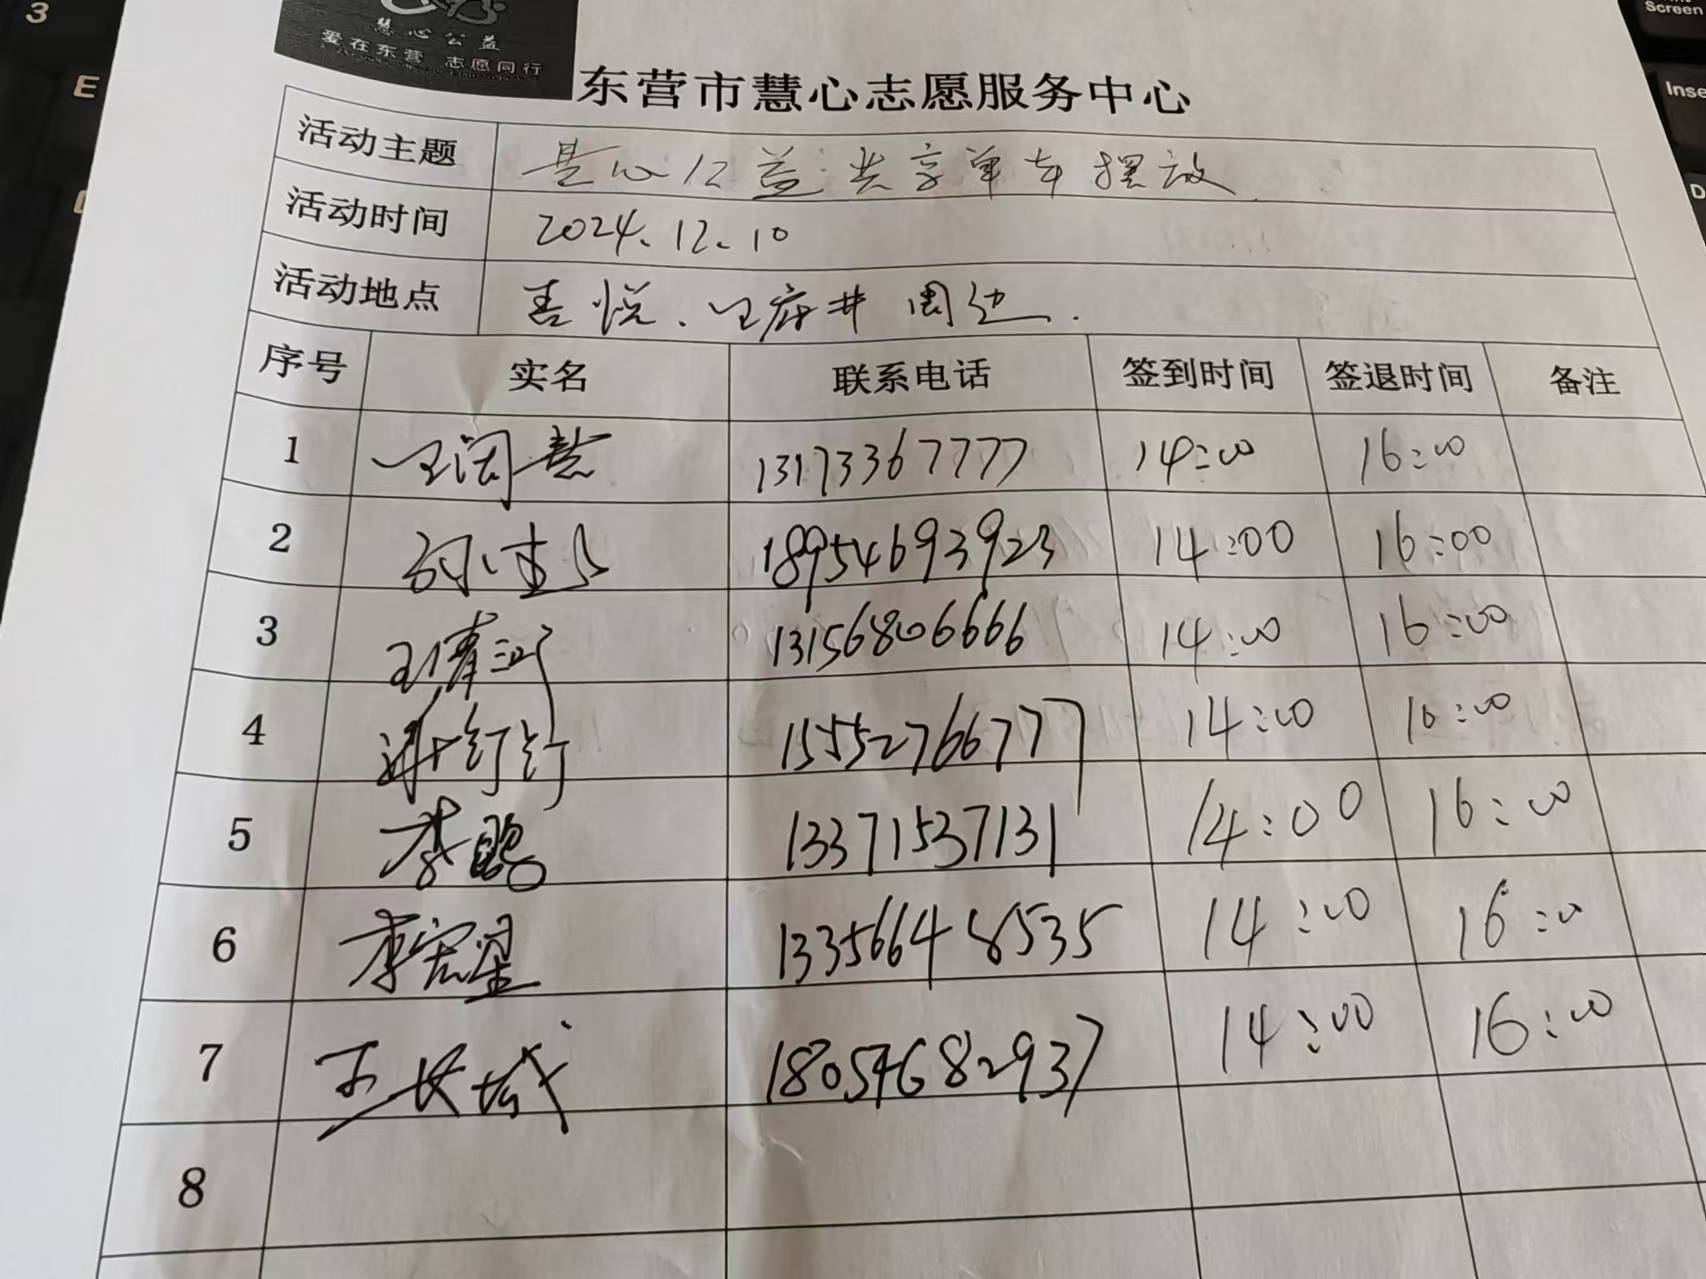 慧心公益
爱在东营 志愿同行
东营市慧心志愿服务中心
活动主题 慧心公益:共享单车摆放
活动时间 2024.12.10
活动地点 善悦、王府井周边.
序号 实名 联系电话 签到时间 签退时间 备注
1 王阔慧 13173367777 14:00 16:00
2 18954693923 14:00 16:00
3 王倩河 13156806666 14:00 16:00
4 谢钉钉 15552766777 14:00 16:00
5 李鹏 13371537131 14:00 16:00
6 李宏星 13356648535 14:00 16:00
7 王长城 18054682937 14:00 16:00
8
3
E
Screen
Inse
D